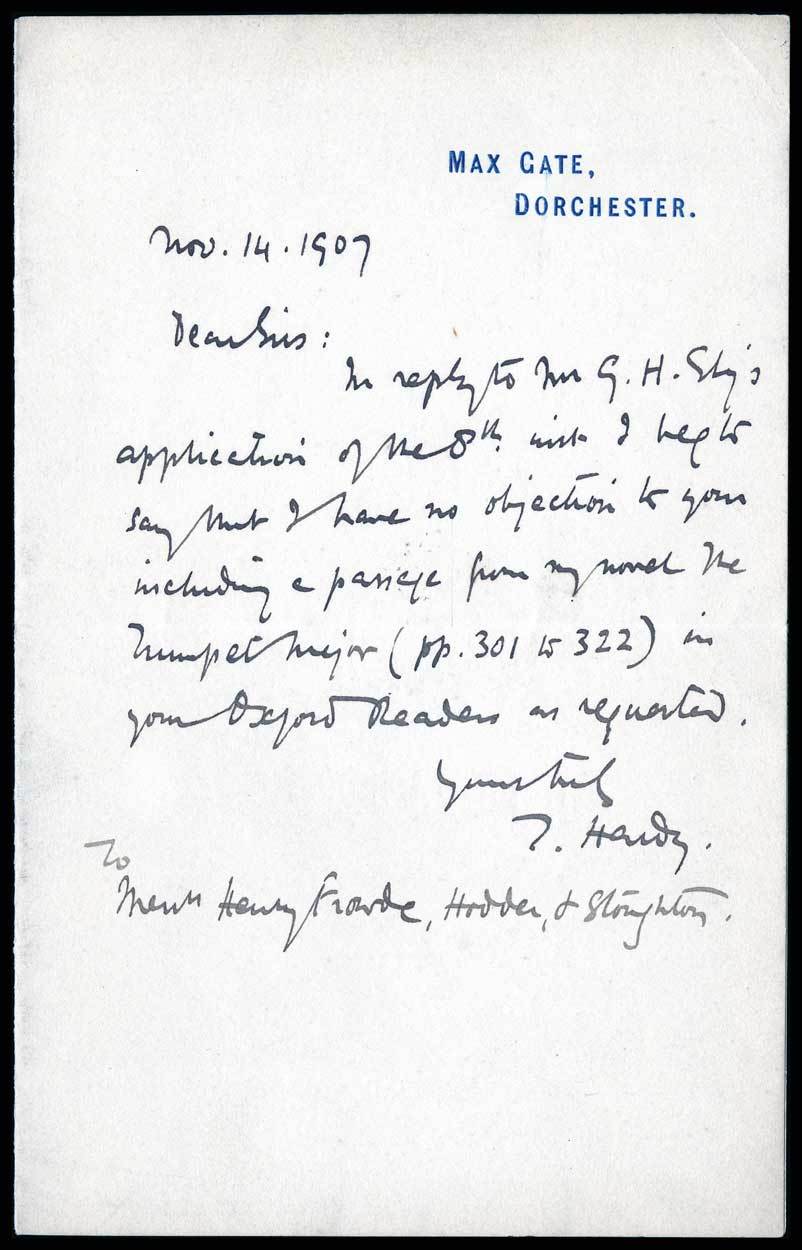 MAX GATE,
DORCHESTER.
Nov. 14. 1907
Dear Sirs:
In reply to Mr G. H. Ely's
application of the 8th. inst. I beg to
say that I have no objection to your
including a passage from my novel The
Trumpet Major (pp. 301 to 322) in
your Oxford Readers as requested.
Yours truly
T. Hardy.
To
Messrs Henry Frowde, Hodder, & Stoughton.